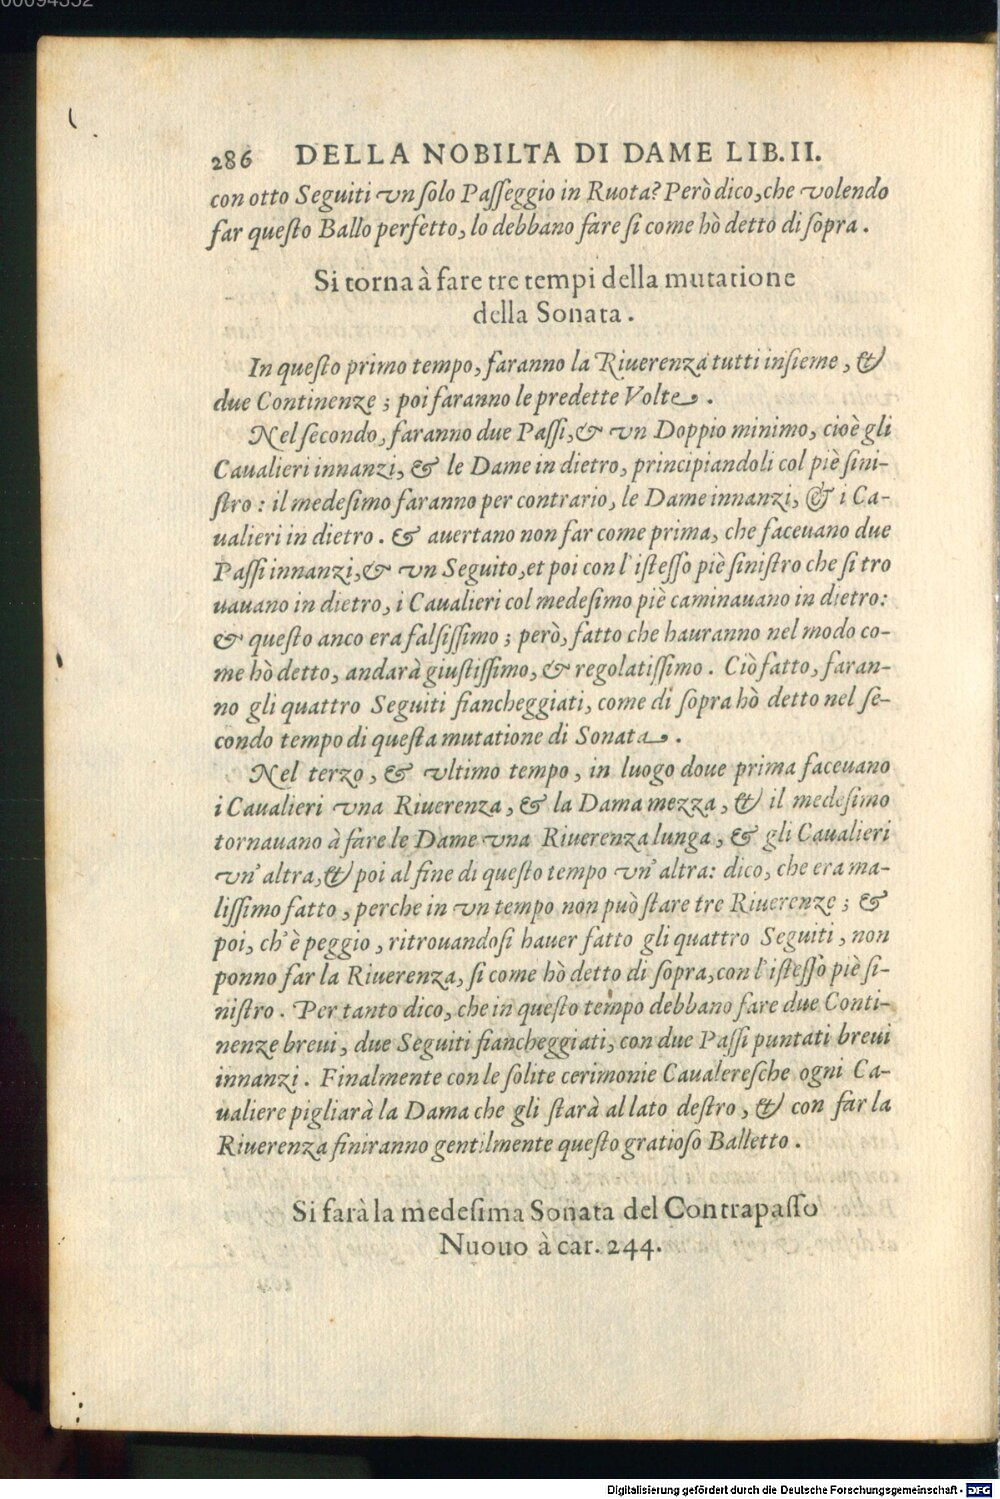 00094352
286 DELLA NOBILTA DI DAME LIB. II.
con otto Seguiti vn ſolo Paſſeggio in Ruota? Però dico, che volendo
far queſto Ballo perfetto, lo debbano fare ſi come hò detto di ſopra.
Si torna à fare tre tempi della mutatione
della Sonata.
In queſto primo tempo, faranno la Riuerenza tutti inſieme, &
due Continenze; poi faranno le predette Volte.
Nel ſecondo, faranno due Paſſi, & vn Doppio minimo, cioè gli
Caualieri innanzi, & le Dame in dietro, principiandoli col piè ſini-
ſtro: il medeſimo faranno per contrario, le Dame innanzi, & i Ca-
ualieri in dietro. & auertano non far come prima, che faceuano due
Paſſi innanzi, & vn Seguito, et poi con l'iſteſſo piè ſiniſtro che ſi tro
uauano in dietro, i Caualieri col medeſimo piè caminauano in dietro:
& queſto anco era falſiſſimo; però, fatto che hauranno nel modo co-
me hò detto, andarà giuſtiſſimo, & regolatiſſimo. Ciò fatto, faran-
no gli quattro Seguiti fiancheggiati, come di ſopra hò detto nel ſe-
condo tempo di queſta mutatione di Sonata.
Nel terzo, & vltimo tempo, in luogo doue prima faceuano
i Caualieri vna Riuerenza, & la Dama mezza, & il medeſimo
tornauano à fare le Dame vna Riuerenza lunga, & gli Caualieri
vn'altra, & poi al fine di queſto tempo vn'altra: dico, che era ma-
liſſimo fatto, perche in vn tempo non può ſtare tre Riuerenze; &
poi, ch'è peggio, ritrouandoſi hauer fatto gli quattro Seguiti, non
ponno far la Riuerenza, ſi come hò detto di ſopra, con l'iſteſſo piè ſi-
niſtro. Per tanto dico, che in queſto tempo debbano fare due Conti-
nenze breui, due Seguiti fiancheggiati, con due Paſſi puntati breui
innanzi. Finalmente con le ſolite cerimonie Caualereſche ogni Ca-
ualiere pigliarà la Dama che gli ſtarà al lato deſtro, & con far la
Riuerenza finiranno gentilmente queſto gratioſo Balletto.
Si farà la medeſima Sonata del Contrapaſſo
Nuouo à car. 244.
Digitalisierung gefördert durch die Deutsche Forschungsgemeinschaft - DFG